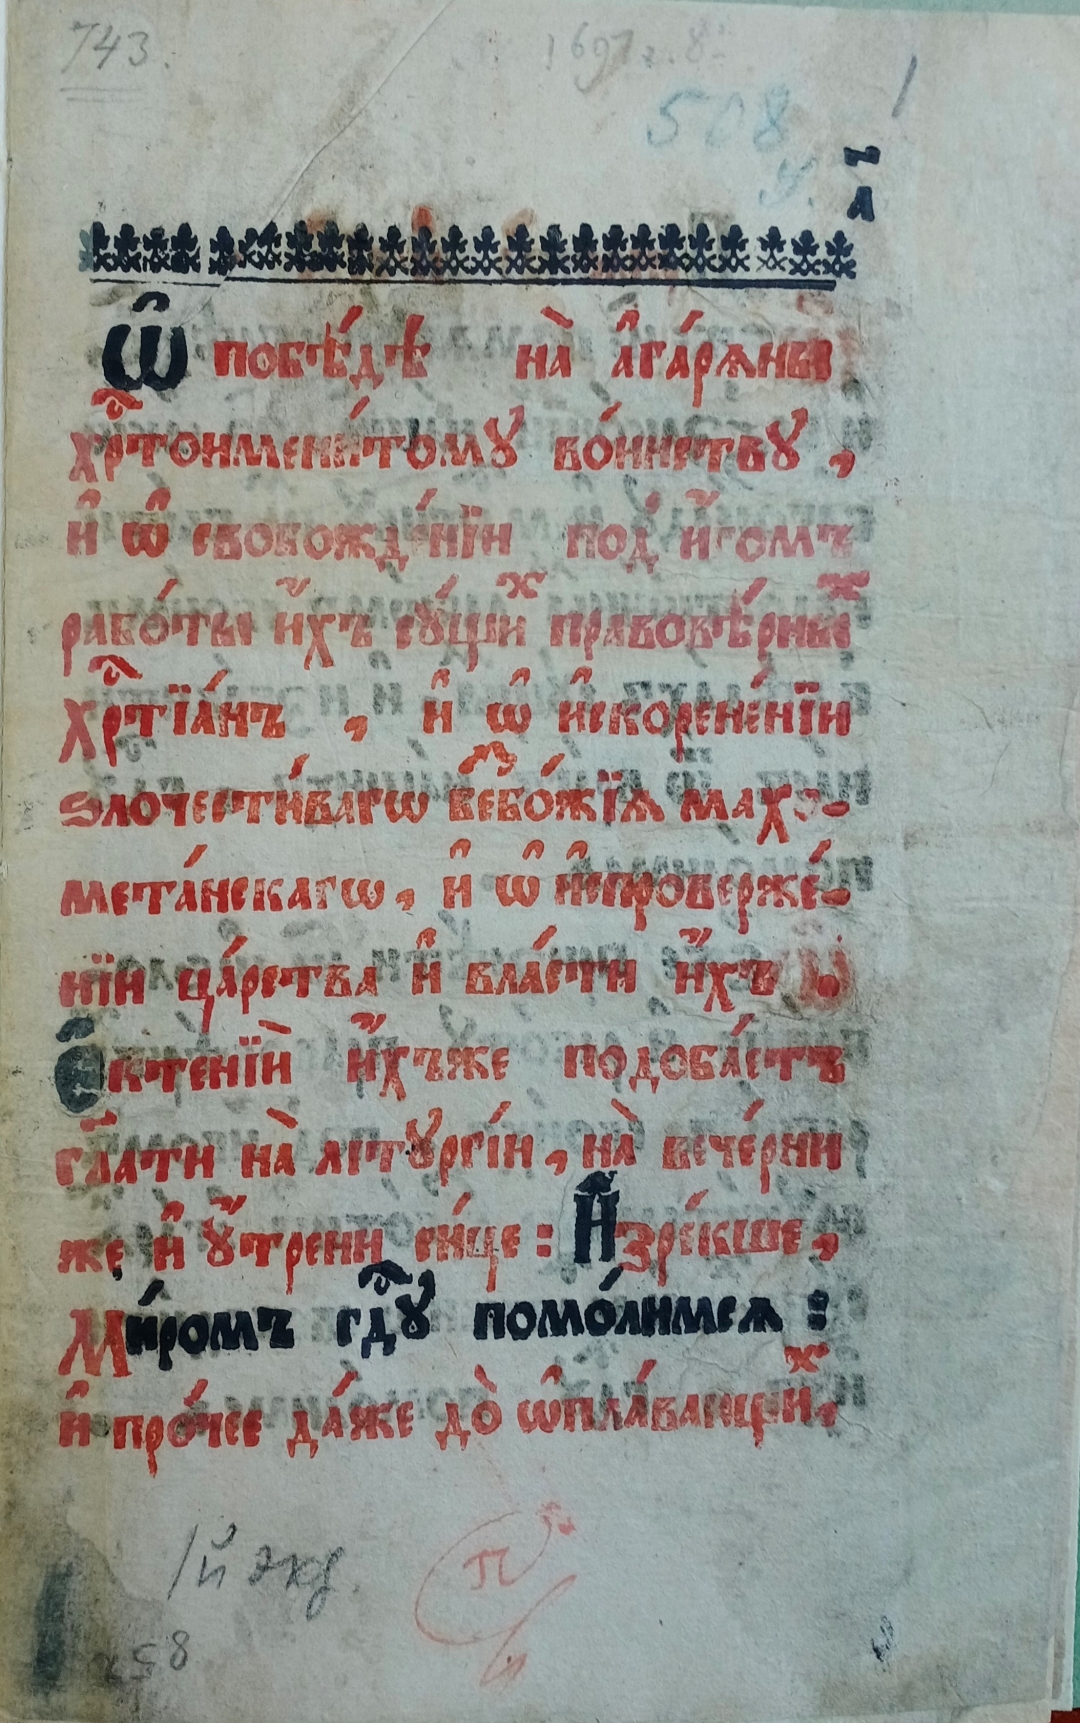 743.
1697 г. 8°
508
1
л҃
Ѡ҆ побѣ́дѣ на̀ а҆гарѧны
хрⷭ҇тоимени́тому во́инству,
и҆ ѡ҆ свобожде́нїи под̾ и҆́гомъ
рабо́ты и҆́хъ сꙋ́щиⷯ правовѣ́рныⷯ
хрⷭ҇тїа́нъ , и҆ ѡ҆ и҆скорене́нїи
ѕлочести́вагѡ все҆бо́жїѧ махо-
мета́нскагѡ, и҆ ѡ҆ и҆спроверже́-
нїи ца́рства и҆ вла́сти и҆́хъ :
Е҆ктенїи̑ и҆́хъже подоба́етъ
гл҃ати на̀ лїтꙋргі́и, на̀ вече́рни
же и҆ ᲂу҆́трени си́це : И҆зре́кше,
Ми́ромъ гдⷭ҇ꙋ помо́лимсѧ :
и҆ про́чее да́же до̀ ѡ҆пла́вающиⷯ,
1й экз.
258